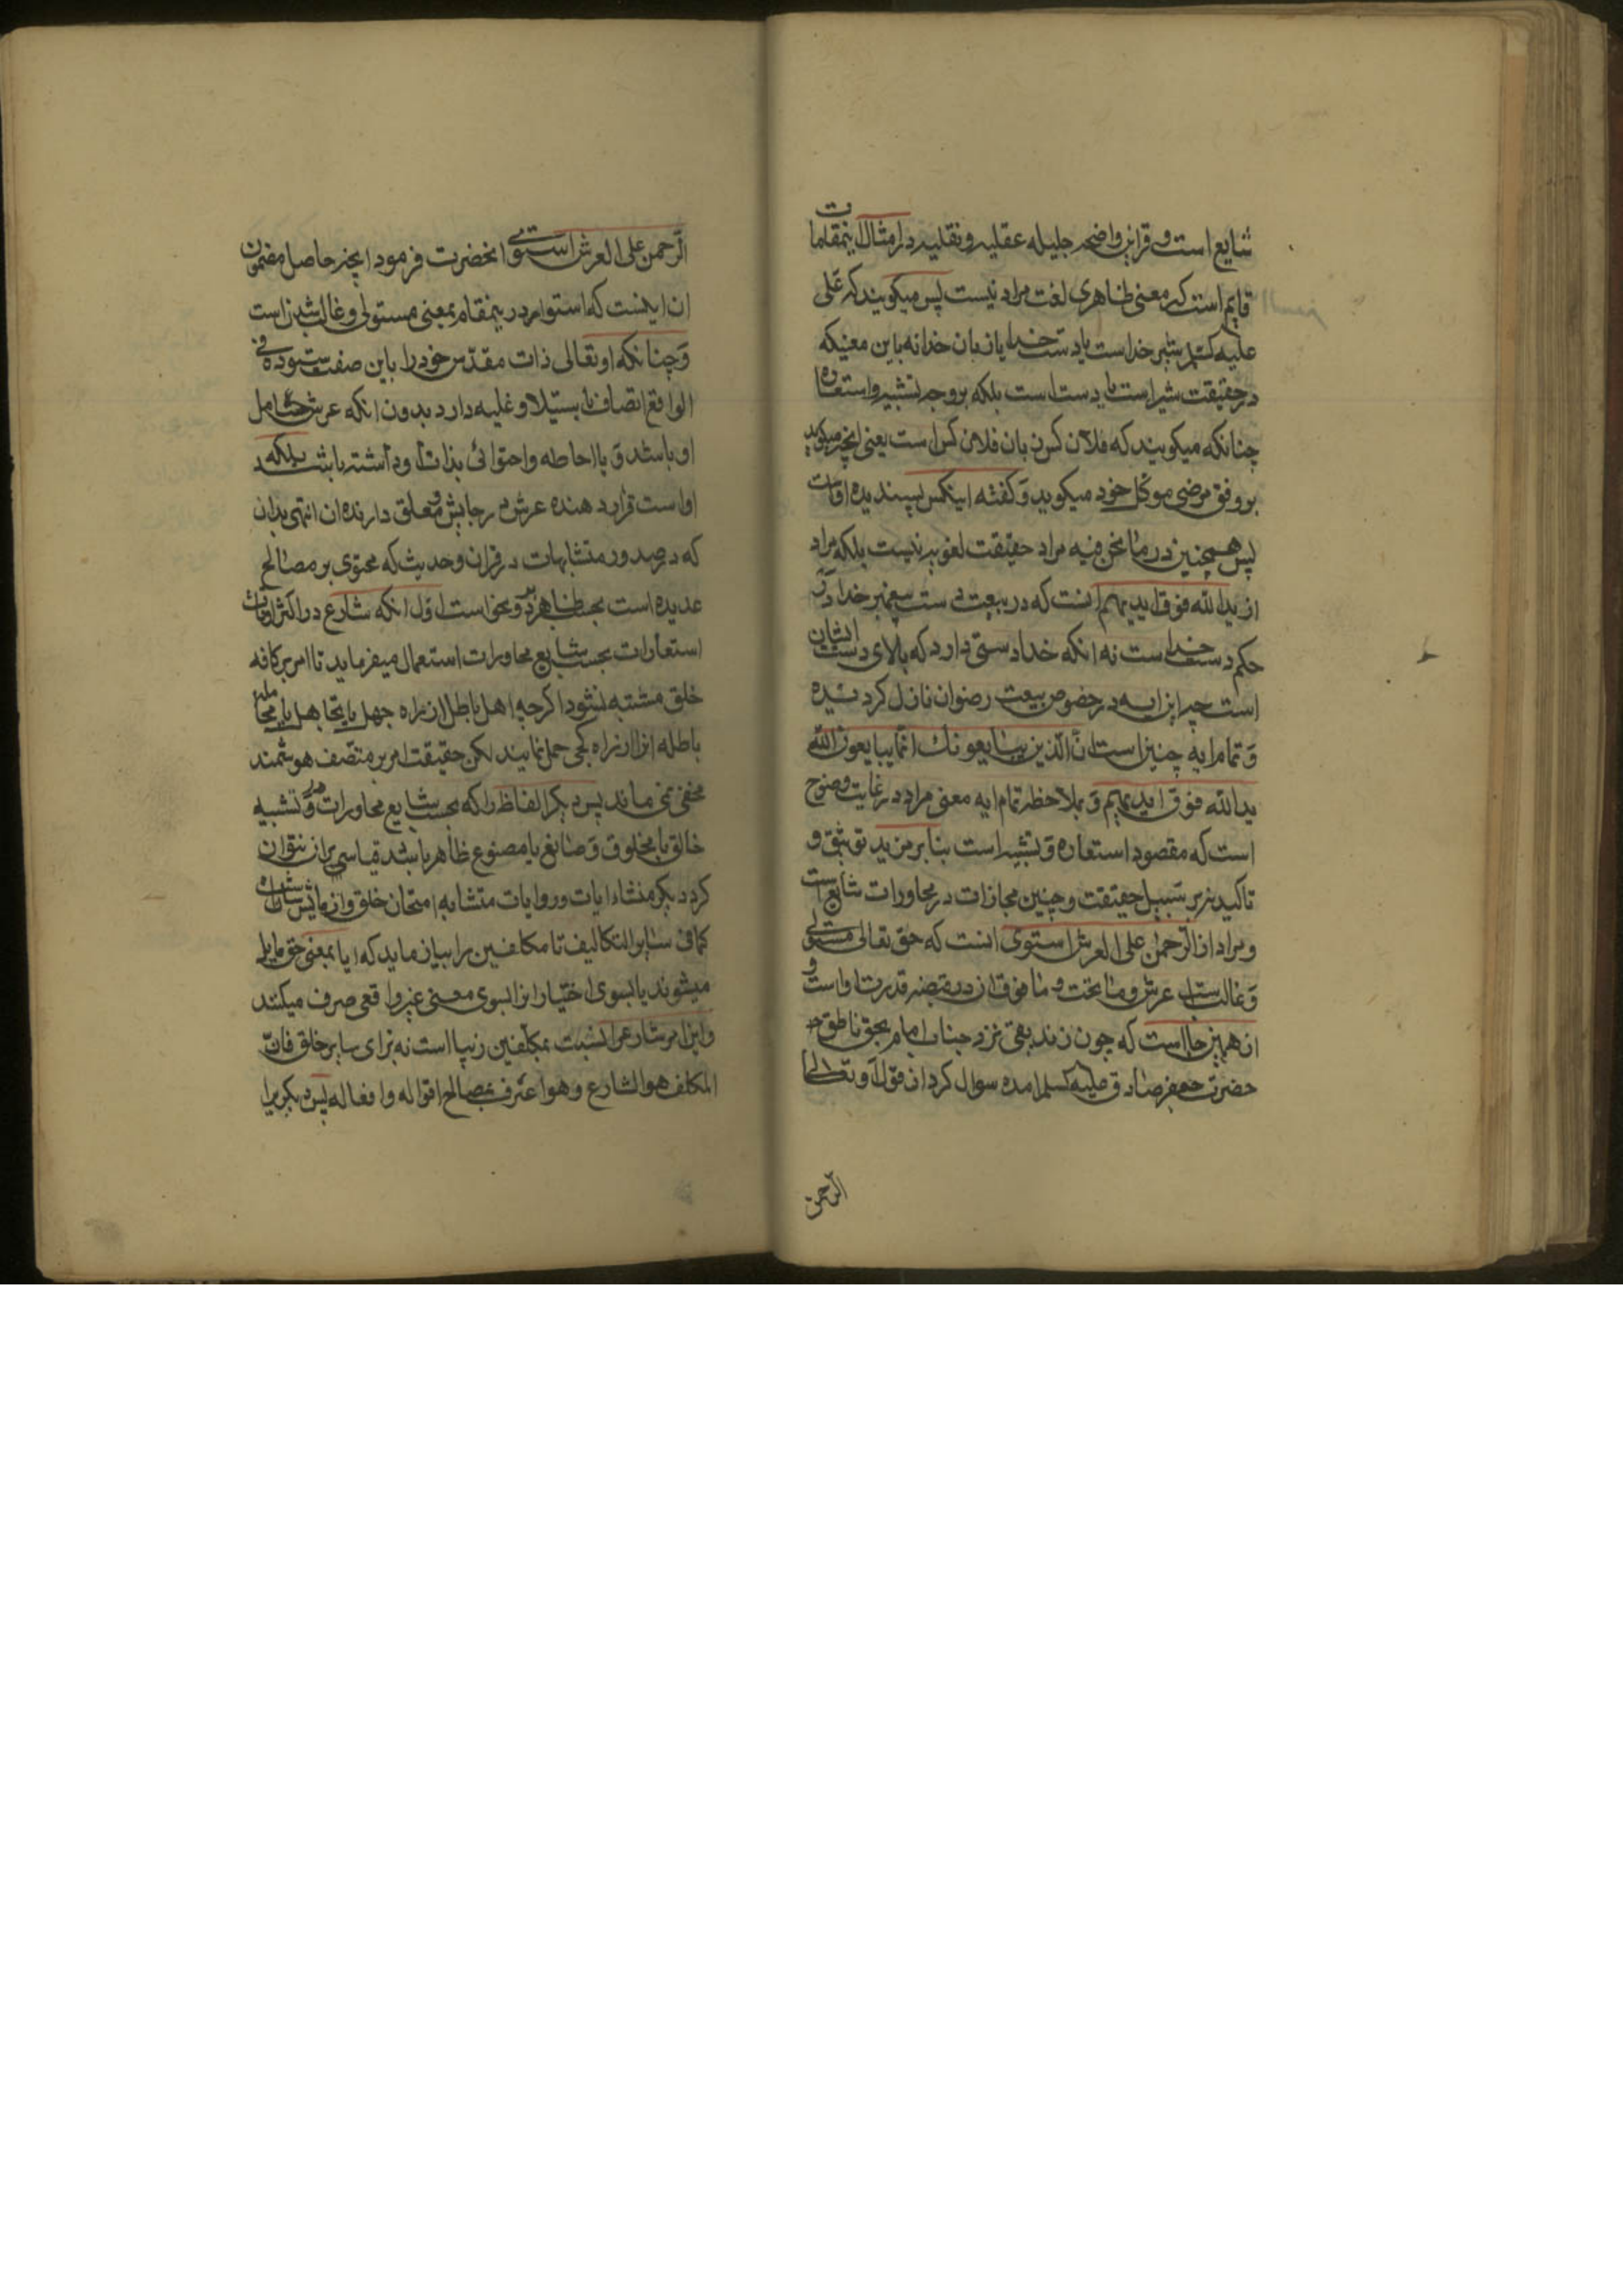 شایع است و قراین واضحه جلیله عقلیه و نقلیه در امثال اینمقامات
قایم است که معنی ظاهری لغت مراد نیست پس میگویند که علی
علیه السلام شیر خداست یا دست خدا یا زبان خدا نه باین معنیکه
در حقیقت شیر است یا دست است بلکه بر وجه تشبیه و استعاره
چنانکه میگویند که فلان کس زبان فلان کس است یعنی انچه میگوید
بر وفق مرضی موکل خود میگوید و گفته اینکس پسندیده اوست
پس همچنین در ما نحن فیه مراد حقیقت لغویه نیست بلکه مراد
از یدالله فوق ایدیهم انست که در بیعت دست پیغمبر خدا در
حکم دست خداست نه انکه خدا دستی دارد که بالای دست ایشان
است چه این ایه در خصوص بیعت رضوان نازل کردیده
و تمام ایه چنین است ان الذین یبایعونک انما یبایعون الله
یدالله فوق ایدیهم و بملاحظه تمام ایه معنی مراد در غایت وضوح
است که مقصود استعاره و تشبیه است بنابر مزید توثیق و
تاکید نه بر سبیل حقیقت و چنین مجازات در محاورات شایع است
و مراد از الرحمن علی العرش استوی انست که حق تعالی مستولی
و غالبست بر عرش و ما تحت و ما فوق ان در قبضه قدرت او است و
از همین جا است که چون زندیقی نزد جناب امام بحق ناطق
حضرت جعفر صادق علیه السلم امده سوال کرد از قول او تعالی
الرحمن
الرحمن علی العرش استوی انحضرت فرمود انچه حاصل مضمون
ان اینست که استوا در ینمقام بمعنی مستولی و غالب شدن است
و چنانکه او تعالی ذات مقدس خود را باین صفت ستوده فی
الواقع اتصاف باستیلا و غلبه دارد بدون انکه عرش حامل
او باشد و یا احاطه و احتوائی بذات او داشته باشد بلکه
او است قرار دهنده عرش بر جایش و معلق دارنده ان انتهی بدان
که در صدور متشابهات در قران و حدیث که محتوی بر مصالح
عدیده است بحسب ظاهر دو نحو است اول انکه شارع در اکثر اوقات
استعارات بحسب شایع محاورات استعمال میفرماید تا امر بر کافه
خلق مشتبه نشود اگرچه اهل باطل از راه جهل یا تجاهل یا
باطله انرا از راه کجی حمل نمایند لکن حقیقت امر بر متصف هوشمند
مخفی نمی ماند پس دیگر الفاظ را که بحسب شایع محاورات و تشبیه
خالق با مخلوق و صانع با مصنوع ظاهر باشد قیاسی بر ان نتوان
کرد دیگر منشاء ایات و روایات متشابه امتحان خلق و ازمایش
کما فی سایر التکالیف تا مکلفین را بیازماید که ایا بمعنی حق مایل
میشوند یا بسوی اختیار انرا بسوی معنی غیر واقعی صرف میکنند
و این امر شارع را نسبت بمکلفین زیبا است نه برای سایر خلق فان
المکلف هو الشارع و هو اعرف بمصالح اقواله و افعاله پس دیگر را